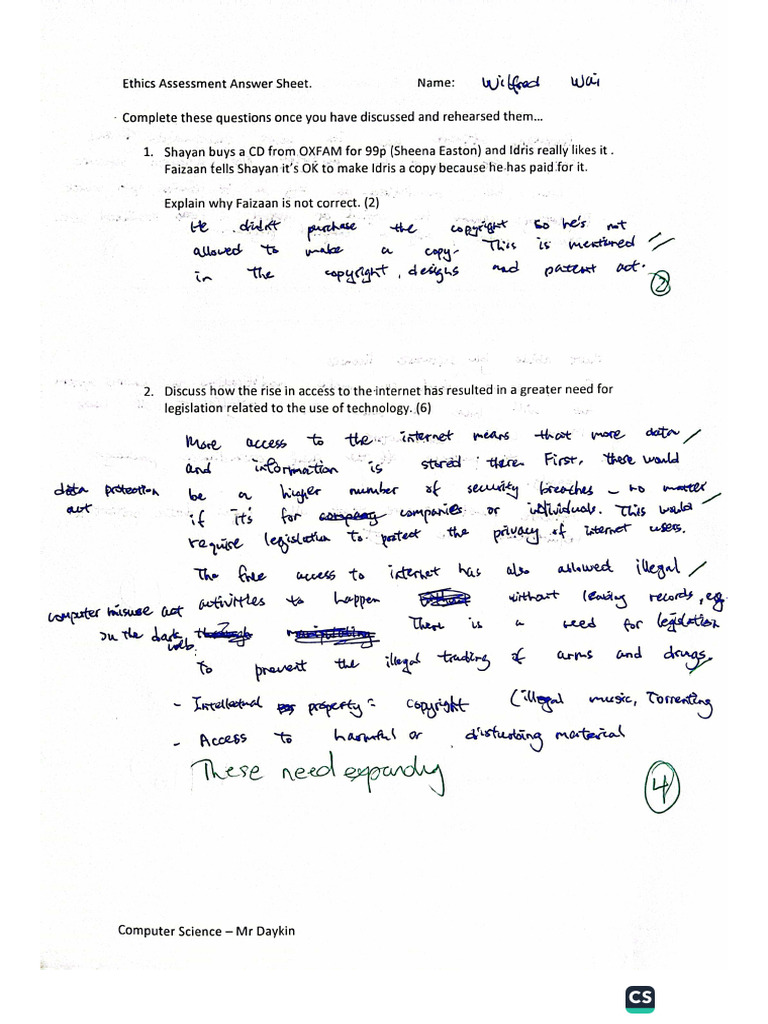 Ethics Assessment Answer Sheet. Name: Wilfred Wai
Complete these questions once you have discussed and rehearsed them...
1. Shayan buys a CD from OXFAM for 99p (Sheena Easton) and Idris really likes it .
Faizaan tells Shayan it's OK to make Idris a copy because he has paid for it.
Explain why Faizaan is not correct. (2)
He didn't purchase the copyright so he's not
allowed to make a copy. This is mentioned
in the copyright, designs and patent act.
2
2. Discuss how the rise in access to the internet has resulted in a greater need for
legislation related to the use of technology. (6)
More access to the internet means that more data
and information is stored there. First, there would
data protection be a higher number of security breaches – no matter
act if it's for companies or individuals. This would
require legislation to protect the privacy of internet users.
The free access to internet has also allowed illegal
computer misuse act activities to happen without leaving records, eg.
on the dark web. There is a need for legislation
to prevent the illegal trading of arms and drugs.
- Intellectual property: copyright (illegal music, Torrenting
- Access to harmful or disturbing material
These need expanding
4
Computer Science – Mr Daykin
CS